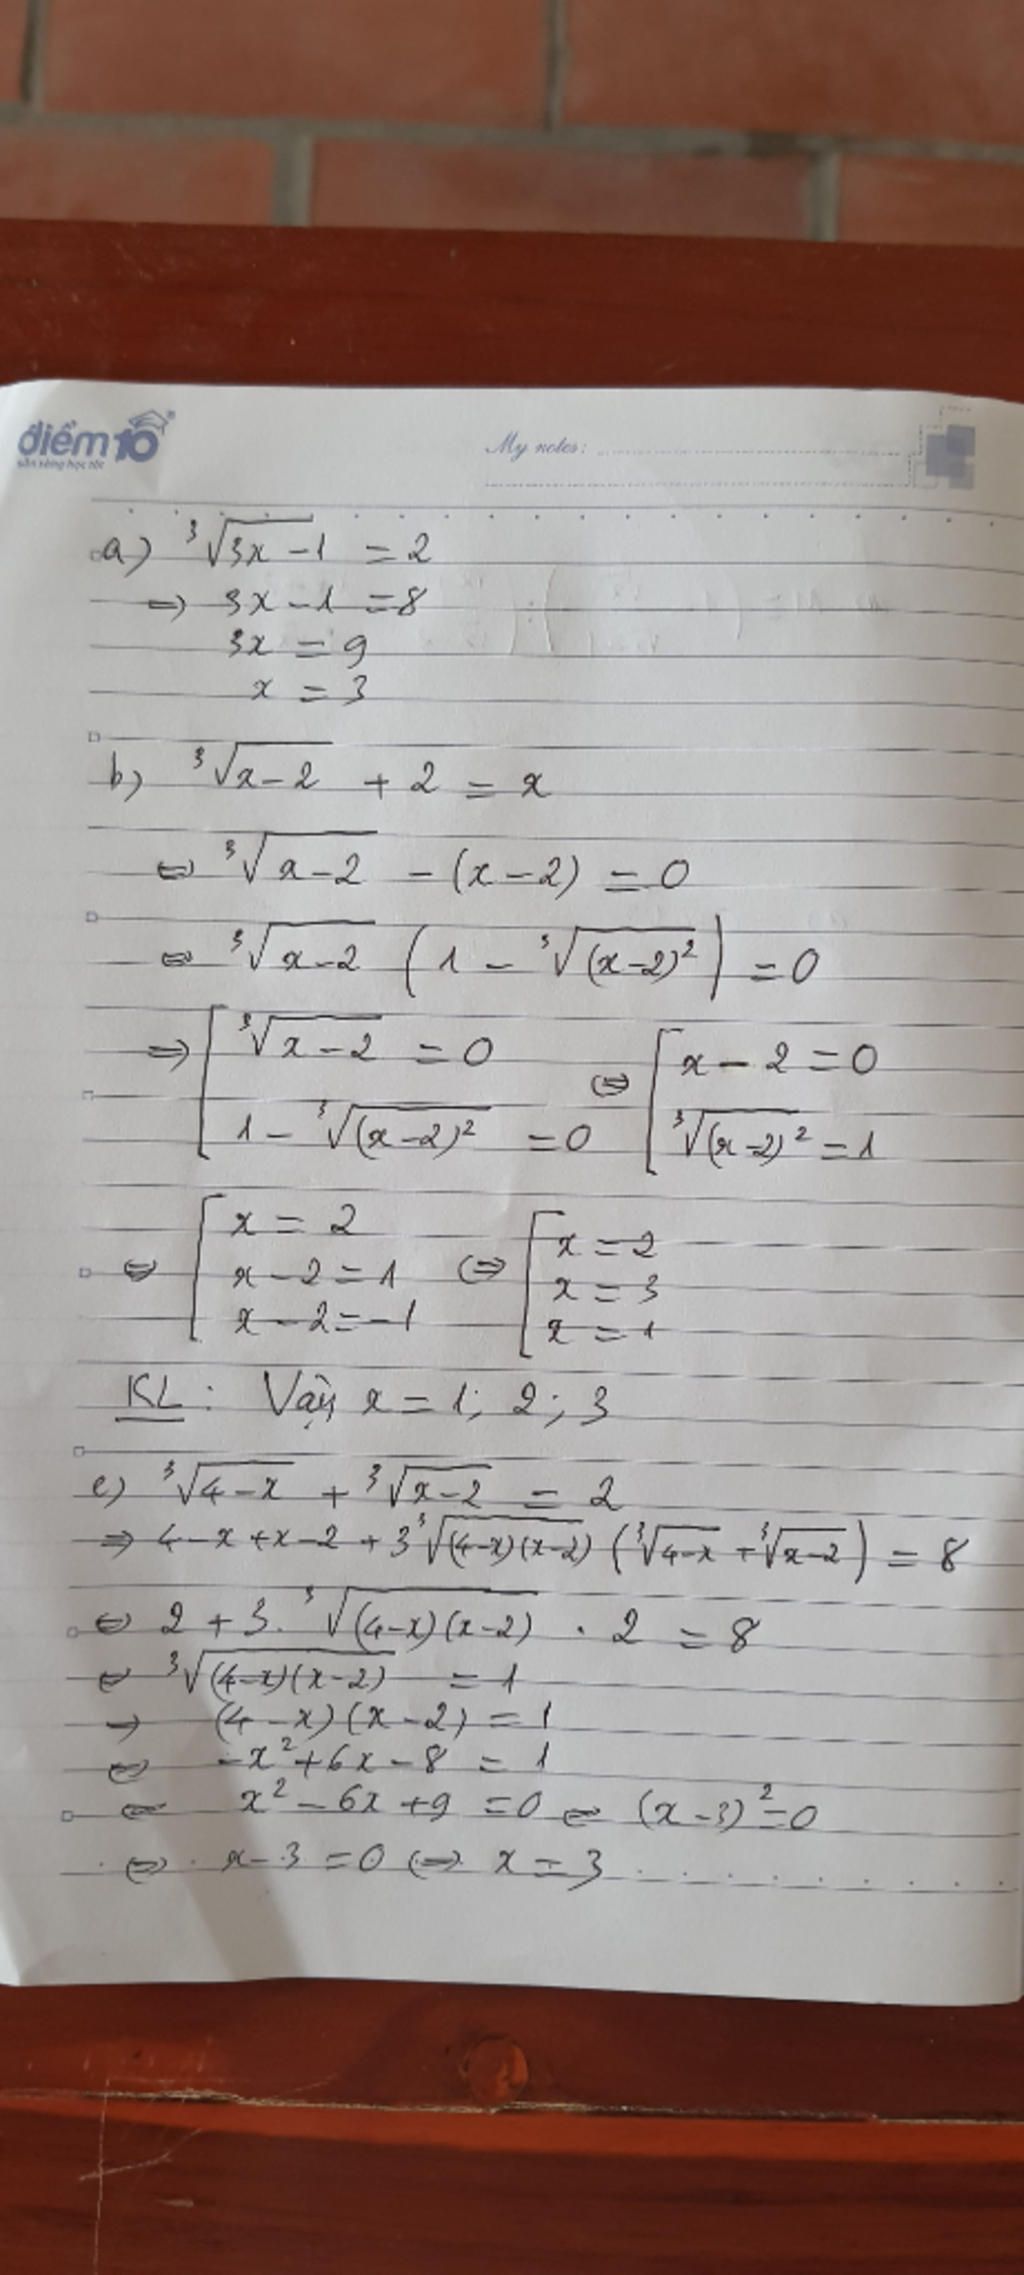 điểm10
sẵn sàng học tốt
My notes:
a) ³√(3x-1) = 2
=> 3x - 1 = 8
3x = 9
x = 3
b) ³√(x-2) + 2 = x
<=> ³√(x-2) - (x-2) = 0
<=> ³√(x-2) (1 - ³√((x-2)²)) = 0
=> [ ³√(x-2) = 0 <=> [ x - 2 = 0
1 - ³√((x-2)²) = 0 ³√((x-2)²) = 1
<=> [ x = 2 <=> [ x = 2
x - 2 = 1 x = 3
x - 2 = -1 x = 1
KL: Vậy x = 1; 2; 3
c) ³√(4-x) + ³√(x-2) = 2
=> 4-x+x-2 + 3 ³√((4-x)(x-2)) (³√(4-x) + ³√(x-2)) = 8
<=> 2 + 3. ³√((4-x)(x-2)) . 2 = 8
<=> ³√((4-x)(x-2)) = 1
=> (4-x)(x-2) = 1
<=> -x² + 6x - 8 = 1
<=> x² - 6x + 9 = 0 <=> (x-3)² = 0
<=> x - 3 = 0 <=> x = 3